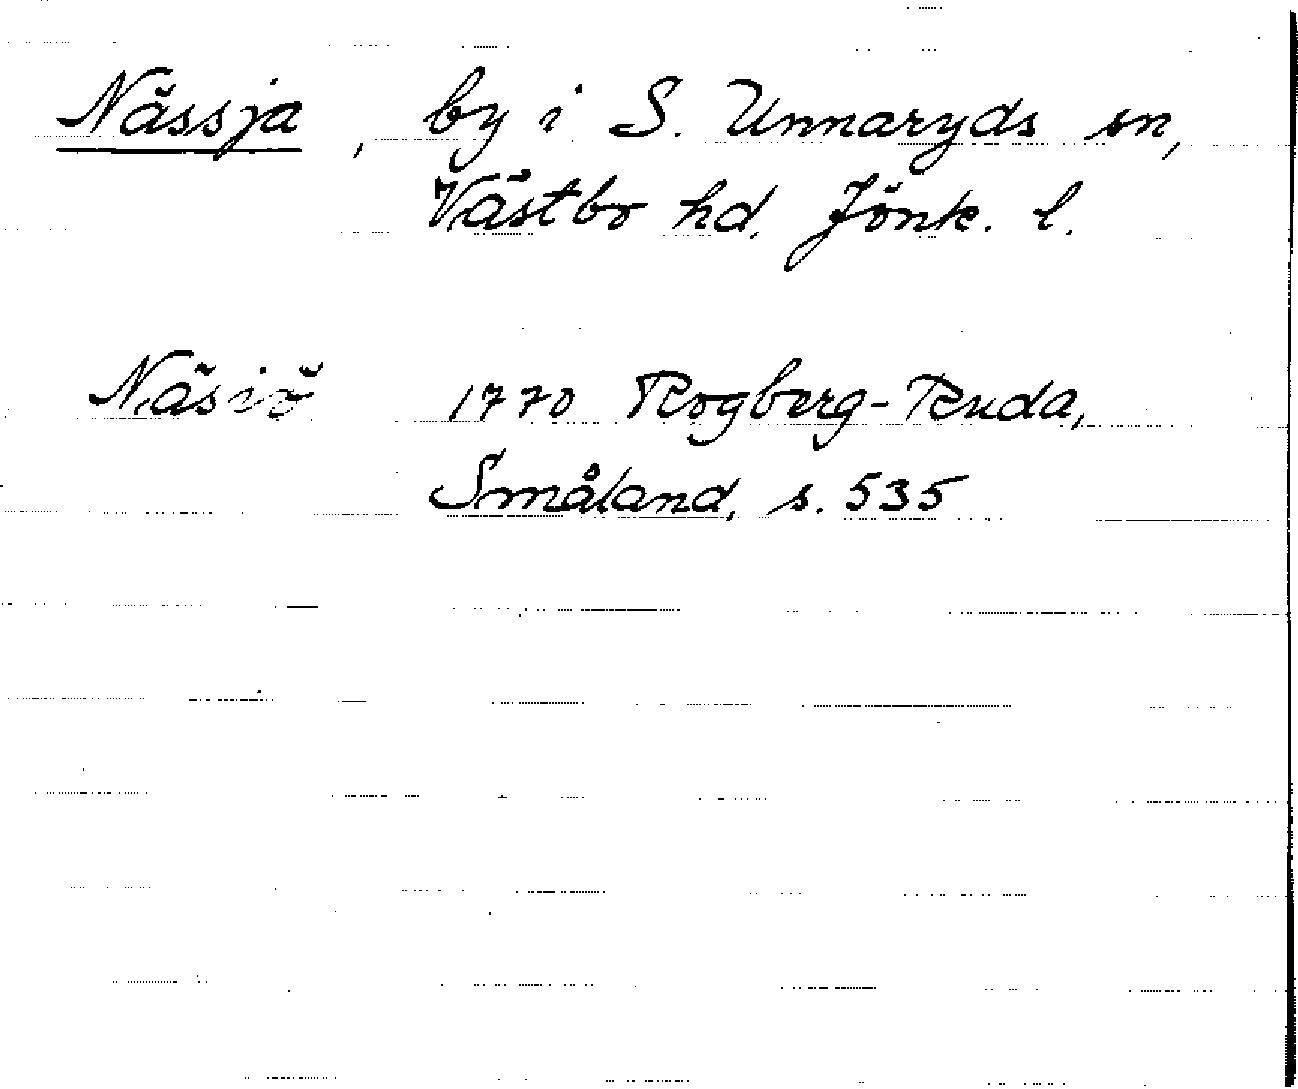 Nässja, by i S. Unnaryds sn,
Västbo hd. Jönk. l.
Näsiö 1770 Rogberg-Ruda,
Småland, s. 535